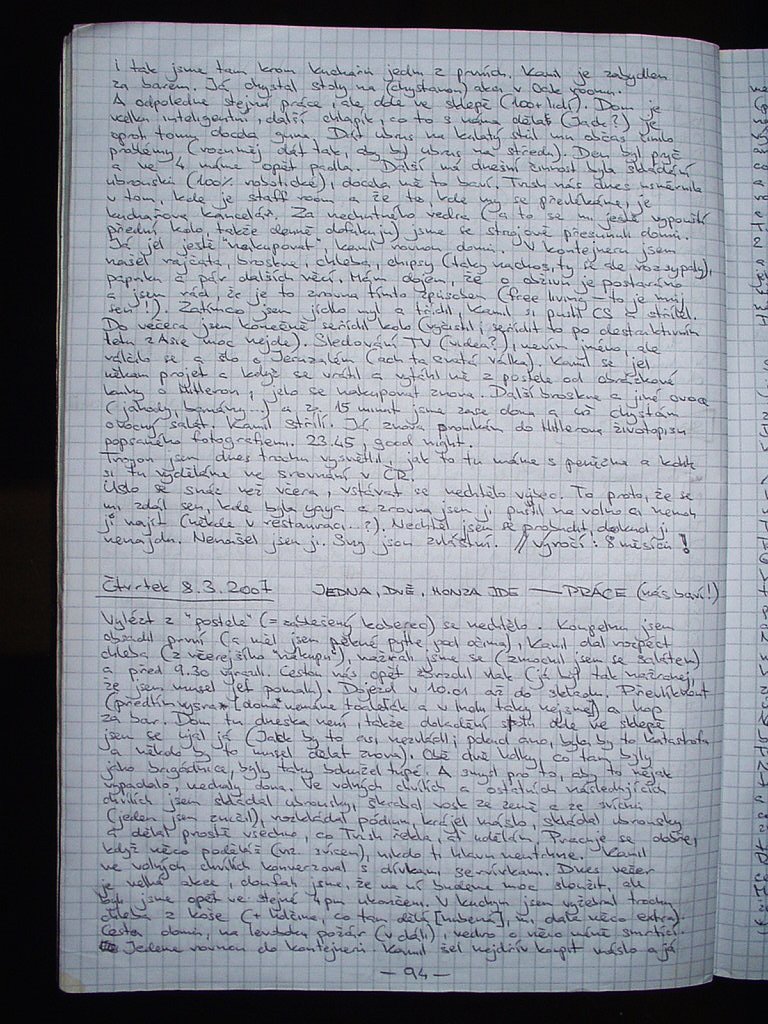 i tak jsme tam krom kuchařů jedni z prvních. Kamil je zabydlen
za barem. Já chystal stoly na (chystanou) akci v Oak roomu.
A odpoledne stejná práce, ale dole ve sklepě (100+ lidí). Dom je
velkej inteligentní, další chlapík, co to s náma dělal (Jack?) je
oproti tomu docela guma. Dát ubrus na kulatý stůl mu občas činilo
problémy (rozuměj dát tak, aby byl ubrus na středu). Den byl pryč
a ve 4 máme opět padla. Další má dnešní činnost byla skládání
ubrousků (100% robotické), docela mě to baví. Trish nás dnes usměrnila
v tom, kde je staff room a že to, kde my se převlékáme, je
kuchařova kancelář. Za nechutného vedra (a to se mi ještě vypouští
přední kolo, takže denně dofukuju) jsme se strojově přesunuli domů.
Já jel ještě "nakupovat", Kamil rovnou domů. V kontejneru jsem
našel rajčata, broskve, chleba, chipsy (taky nachos, ty se ale rozsypaly),
papriku a pár dalších věcí. Mám dojem, že o obživu je postaráno
a jsem rád, že je to zrovna tímto způsobem (free living – to je můj
sen!). Zatímco jsem jídlo myl a třídil, Kamil si pustil CS a střílel.
Do večera jsem konečně seřídil kolo (vyčistil, seřídit to po destruktivním
letu z Asie moc nejde). Sledování TV (video?), nevím jméno, ale
válčilo se a šlo o Jeruzalém (ach ta svatá válka). Kamil se jel
někam projet a když se vrátil a vytáhl mě z postele od obrázkové
knihy o Hitlerovi, jelo se nakupovat znova. Další broskve a jiné ovoce
(jahody, banány...) a za 15 minut jsme zase doma a už chystám
ovocný salát. Kamil střílí. Já znova pronikám do Hitlerova životopisu
popsaného fotografiemi. 23.45, good night.
jsem dnes trochu vysvětlil, jak to tu máme s penězma a kolik
si tu vyděláme ve srovnání v ČR.
Uslo se snáz než včera, vstávat se nechtělo vůbec. To proto, že se
mi zdál sen, kde byla yaya a zrovna jsem ji pustil na volno a nemoh
ji najít (někde v restauraci...?). Nechtěl jsem se probudit, dokud ji
nenajdu. Nenašel jsem ji. Sny jsou zvláštní. // výročí: 8 měsíců!
Čtvrtek 8.3.2007 JEDNA, DVĚ, HONZA JDE — PRÁCE (nás baví!)
Vylézt z "postele" (= zatešený koberec) se nechtělo. Koupelnu jsem
obsadil první (a měl jsem pěkné pytle pod očima), Kamil dal rozpéct
chleba (z včerejšího "nákupu"), nažrali jsme se (zmocnil jsem se salátem)
a před 9.30 vyrazili. Cestou nás opět zbrzdil vlak (já byl tak nažranej,
že jsem musel jet pomalu). Dojezd v 10.01 až do skladu. Převléknout
(předtím vysrat (doma nemáme toaleťák a v lochu taky nejsme)) a hop
za bar. Dom tu dneska není, takže dokončení stolů dole ve sklepě
jsem se ujal já (Jack by to asi nezvládl; pokud ano, byla by to katastrofa
a někdo by to musel dělat znova). Obě dvě holky, co tam byly
jako brigádnice, byly taky bohužel tupé. A smysl pro to, aby to nějak
vypadalo, neměly dona. Ve volných chvílích a ostatních následujících
chvílích jsem skládal ubrousky, škrabal vosk ze země a ze svícnů
(jeden jsem zničil), rozkládal pódium, krájel máslo, skládal ubrousky
a dělat prostě všechno, co Trish řekla, ať udělám. Pracuje se dobře,
když něco poděláš (viz. svícen), nikdo ti hlavu neutrhne. Kamil
ve volných chvílích konverzoval s dívkami servírkami. Dnes večer
je velká akce, doufali jsme, že na ní budeme moc sloužit, ale
byli jsme opět ve stejné 4pm ukončeni. V kuchyni jsem vyžebral trochu
chleba z koše (+ ženu, co tam dělá [hubená], mi dala něco extra).
Cesta domů, na levoboku požár (v dáli), vedro o něco míň smrtící.
Jedeme rovnou do kontejneru. Kamil šel nejdřív koupit máslo a já
— 94 —